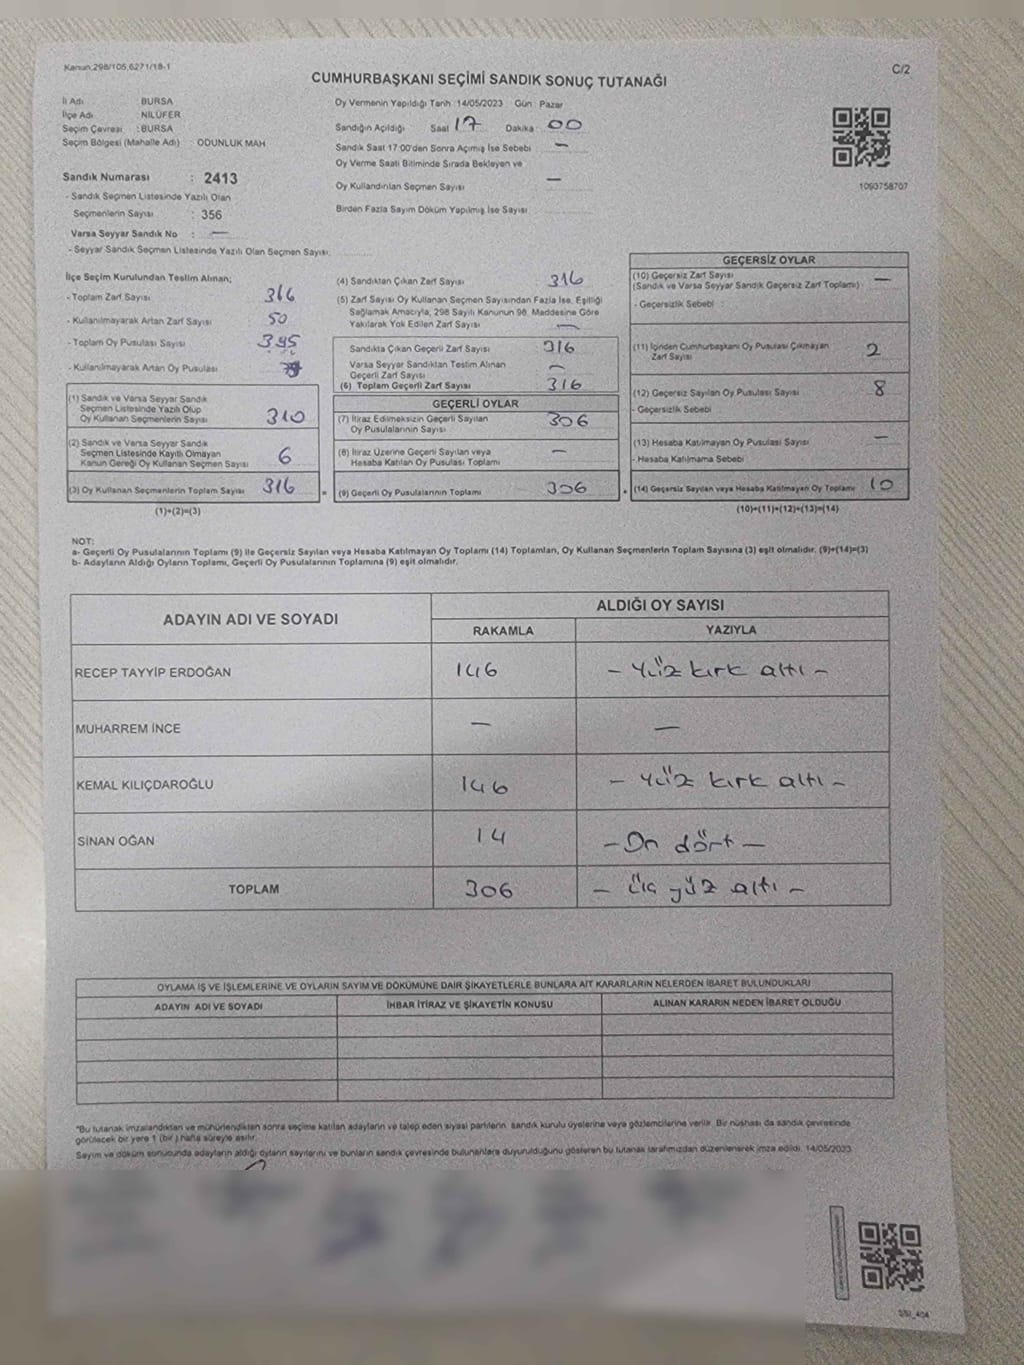 Kanun:298/105,6271/18-1
C/2
CUMHURBAŞKANI SEÇİMİ SANDIK SONUÇ TUTANAĞI
İl Adı BURSA
İlçe Adı NİLÜFER
Seçim Çevresi : BURSA
Seçim Bölgesi (Mahalle Adı) ODUNLUK MAH
Sandık Numarası : 2413
- Sandık Seçmen Listesinde Yazılı Olan
Seçmenlerin Sayısı : 356
Varsa Seyyar Sandık No : —
- Seyyar Sandık Seçmen Listesinde Yazılı Olan Seçmen Sayısı:
Oy Vermenin Yapıldığı Tarih :14/05/2023 Gün : Pazar
Sandığın Açıldığı Saat 17 Dakika : 00
Sandık Saat 17:00'den Sonra Açılmış İse Sebebi —
Oy Verme Saati Bitiminde Sırada Bekleyen ve
Oy Kullandırılan Seçmen Sayısı —
Birden Fazla Sayım Döküm Yapılmış İse Sayısı
1093758707
İlçe Seçim Kurulundan Teslim Alınan;
- Toplam Zarf Sayısı 366
- Kullanılmayarak Artan Zarf Sayısı 50
- Toplam Oy Pusulası Sayısı 395
- Kullanılmayarak Artan Oy Pusulası
(1) Sandık ve Varsa Seyyar Sandık
Seçmen Listesinde Yazılı Olup
Oy Kullanan Seçmenlerin Sayısı 310
(2) Sandık ve Varsa Seyyar Sandık
Seçmen Listesinde Kayıtlı Olmayan
Kanun Gereği Oy Kullanan Seçmen Sayısı 6
(3) Oy Kullanan Seçmenlerin Toplam Sayısı 316
(1)+(2)=(3)
=
(4) Sandıktan Çıkan Zarf Sayısı 316
(5) Zarf Sayısı Oy Kullanan Seçmen Sayısından Fazla İse, Eşitliği
Sağlamak Amacıyla, 298 Sayılı Kanunun 98. Maddesine Göre
Yakılarak Yok Edilen Zarf Sayısı —
Sandıkta Çıkan Geçerli Zarf Sayısı 316
Varsa Seyyar Sandıktan Teslim Alınan
Geçerli Zarf Sayısı —
(6) Toplam Geçerli Zarf Sayısı 316
GEÇERLİ OYLAR
(7) İtiraz Edilmeksizin Geçerli Sayılan
Oy Pusulalarının Sayısı 306
(8) İtiraz Üzerine Geçerli Sayılan veya
Hesaba Katılan Oy Pusulası Toplamı —
(9) Geçerli Oy Pusulalarının Toplamı 306
+
GEÇERSİZ OYLAR
(10) Geçersiz Zarf Sayısı
(Sandık ve Varsa Seyyar Sandık Geçersiz Zarf Toplamı) —
- Geçersizlik Sebebi :
(11) İçinden Cumhurbaşkanı Oy Pusulası Çıkmayan
Zarf Sayısı 2
(12) Geçersiz Sayılan Oy Pusulası Sayısı 8
- Geçersizlik Sebebi
(13) Hesaba Katılmayan Oy Pusulası Sayısı —
- Hesaba Katılmama Sebebi
(14) Geçersiz Sayılan veya Hesaba Katılmayan Oy Toplamı 10
(10)+(11)+(12)+(13)=(14)
NOT:
a- Geçerli Oy Pusulalarının Toplamı (9) ile Geçersiz Sayılan veya Hesaba Katılmayan Oy Toplamı (14) Toplamları, Oy Kullanan Seçmenlerin Toplam Sayısına (3) eşit olmalıdır. (9)+(14)=(3)
b- Adayların Aldığı Oyların Toplamı, Geçerli Oy Pusulalarının Toplamına (9) eşit olmalıdır.
ADAYIN ADI VE SOYADI
ALDIĞI OY SAYISI
RAKAMLA YAZIYLA
RECEP TAYYİP ERDOĞAN 146 - Yüz kırk altı -
MUHARREM İNCE — —
KEMAL KILIÇDAROĞLU 146 - Yüz kırk altı -
SİNAN OĞAN 14 - On dört -
TOPLAM 306 - Üç yüz altı -
OYLAMA İŞ VE İŞLEMLERİNE VE OYLARIN SAYIM VE DÖKÜMÜNE DAİR ŞİKAYETLERLE BUNLARA AİT KARARLARIN NELERDEN İBARET BULUNDUKLARI
ADAYIN ADI VE SOYADI İHBAR İTİRAZ VE ŞİKAYETİN KONUSU ALINAN KARARIN NEDEN İBARET OLDUĞU
"Bu tutanak imzalandıktan ve mühürlendikten sonra seçime katılan adayların ve talep eden siyasi partilerin sandık kurulu üyelerine veya gözlemcilerine verilir. Bir nüshası da sandık çevresinde
görülecek bir yere 1 (bir) hafta süreyle asılır.
Sayım ve döküm sonucunda adayların aldığı oyların sayılarını ve bunların sandık çevresinde bulunanlara duyurulduğunu gösteren bu tutanak tarafımızdan düzenlenerek imza edildi. 14/05/2023